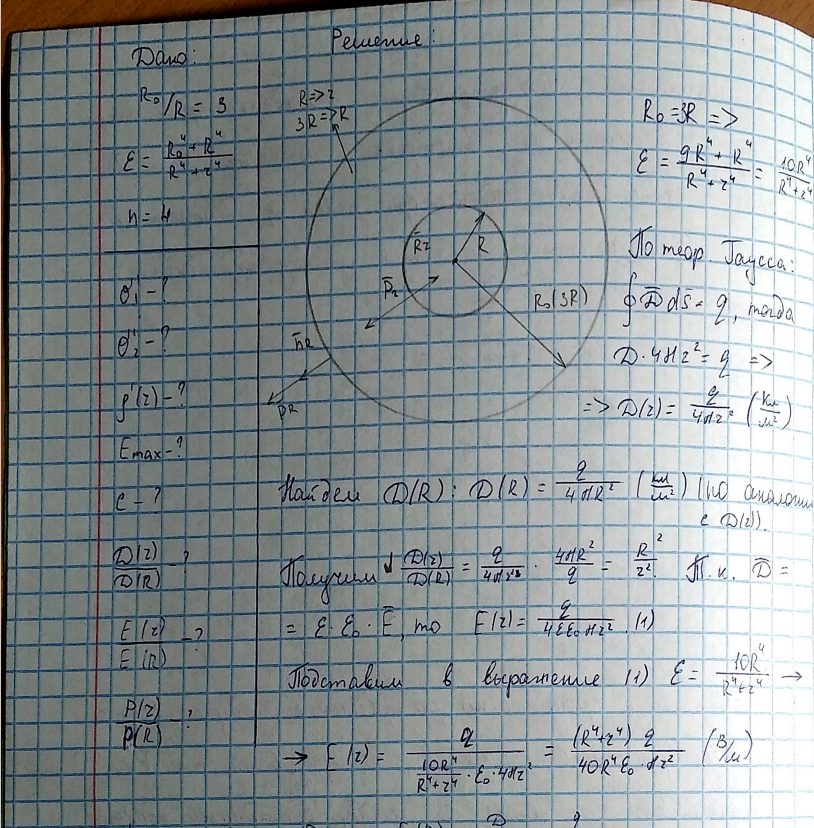 Дано:
R₀/R = 3
ε = (R₀⁴ + R⁴)/(R⁴ + r⁴)
n = 4
σ₁' – ?
σ₂' – ?
ρ'(r) – ?
Emax – ?
C – ?
D(r)/D(R) – ?
E(r)/E(R) – ?
P(r)/P(R) – ?
Решение:
R => r
3R => R
R
R₀(3R)
R₀ = 3R =>
ε = (9R⁴ + R⁴)/(R⁴ + r⁴) = 10R⁴/(R⁴ + r⁴)
По теор. Гаусса:
∮ D̄ ds̄ = q, тогда
D · 4πr² = q =>
=> D(r) = q/(4πr²) (Кл/м²)
Найдем D(R) : D(R) = q/(4πR²) (Кл/м²) (по аналогии
с D(r)).
Получим D(r)/D(R) = q/(4πr²) · 4πR²/q = R²/r². Т.к. D̄ =
= ε · ε₀ · Ē, то E(r) = q/(4εε₀πr²). (1)
Подставим в выражение (1) ε = 10R⁴/(R⁴ + r⁴) →
→ E(r) = q/(10R⁴/(R⁴ + r⁴) · ε₀ · 4πr²) = (R⁴ + r⁴) q/(40R⁴ε₀ · πr²) (В/м)